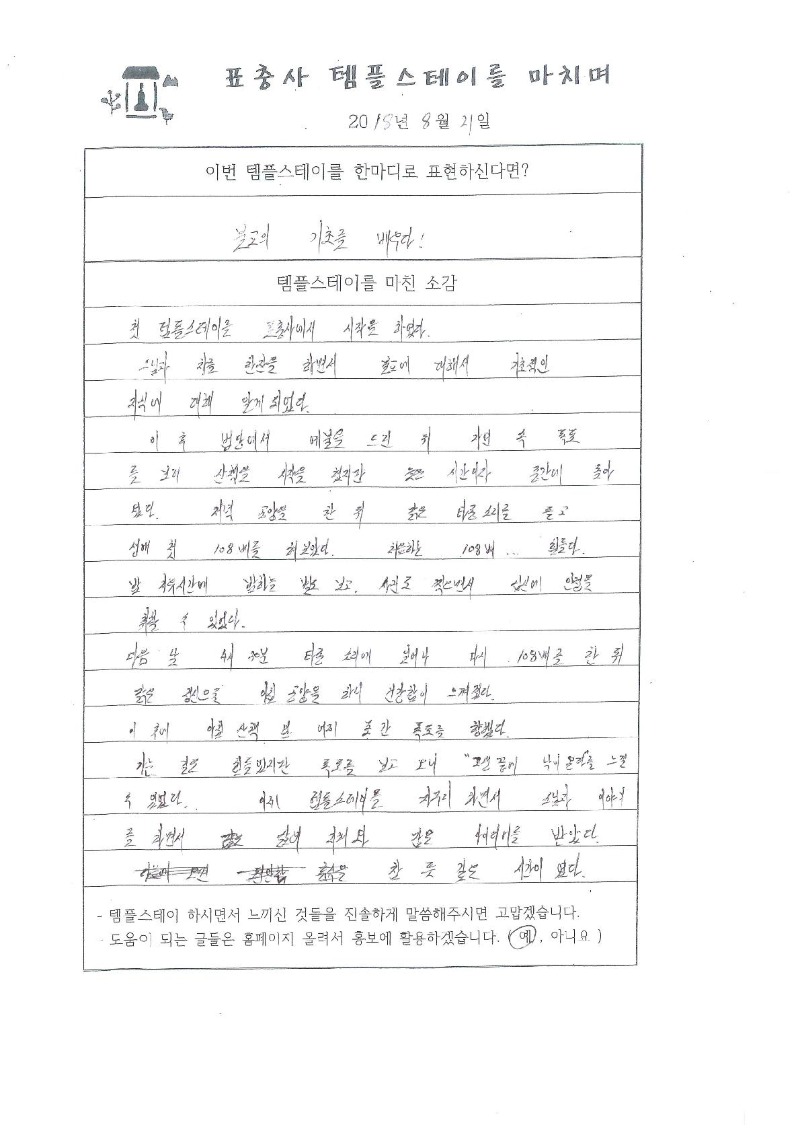 표충사 템플스테이를 마치며
2018년 8월 21일
이번 템플스테이를 한마디로 표현하신다면?
불교의 기초를 배우다!
템플스테이를 마친 소감
첫 템플스테이를 표충사에서 시작을 하였다.
스님과 차를 한잔을 하면서 불교에 대해서 기초적인
지식에 대해 알게 되었다.
이 후 법당에서 예불을 드린 뒤 가던 속 폭포
를 보러 산책을 시작을 했지만 늦은 시간이라 중간에 돌아
왔다. 저녁 공양을 한 뒤 맑은 타종소리를 듣고
생애 첫 108배를 해보았다. 처음하는 108배... 힘들다.
밤 자유시간에 밤하늘 별도 보고, 사진도 찍으면서 심신에 안정을
취할 수 있었다.
다음 날 4시 30분 타종 소리에 일어나 다시 108배를 한 뒤
맑은 정신으로 아침 공양을 하니 건강함이 느껴졌다.
이 후에 아침 산책 및 어제 못 간 폭포를 향했다.
가는 길은 힘들었지만 폭포를 보고 오니 "고생 끝에 낙이 온다"를 느낄
수 있었다. 템플스테이를 하면서 스님과 이야기
를 하면서 받았다.
휴식을 한 듯 같은 시간이 였다.
- 템플스테이 하시면서 느끼신 것들을 진솔하게 말씀해주시면 고맙겠습니다.
- 도움이 되는 글들은 홈페이지 올려서 홍보에 활용하겠습니다. ( 예, 아니요 )